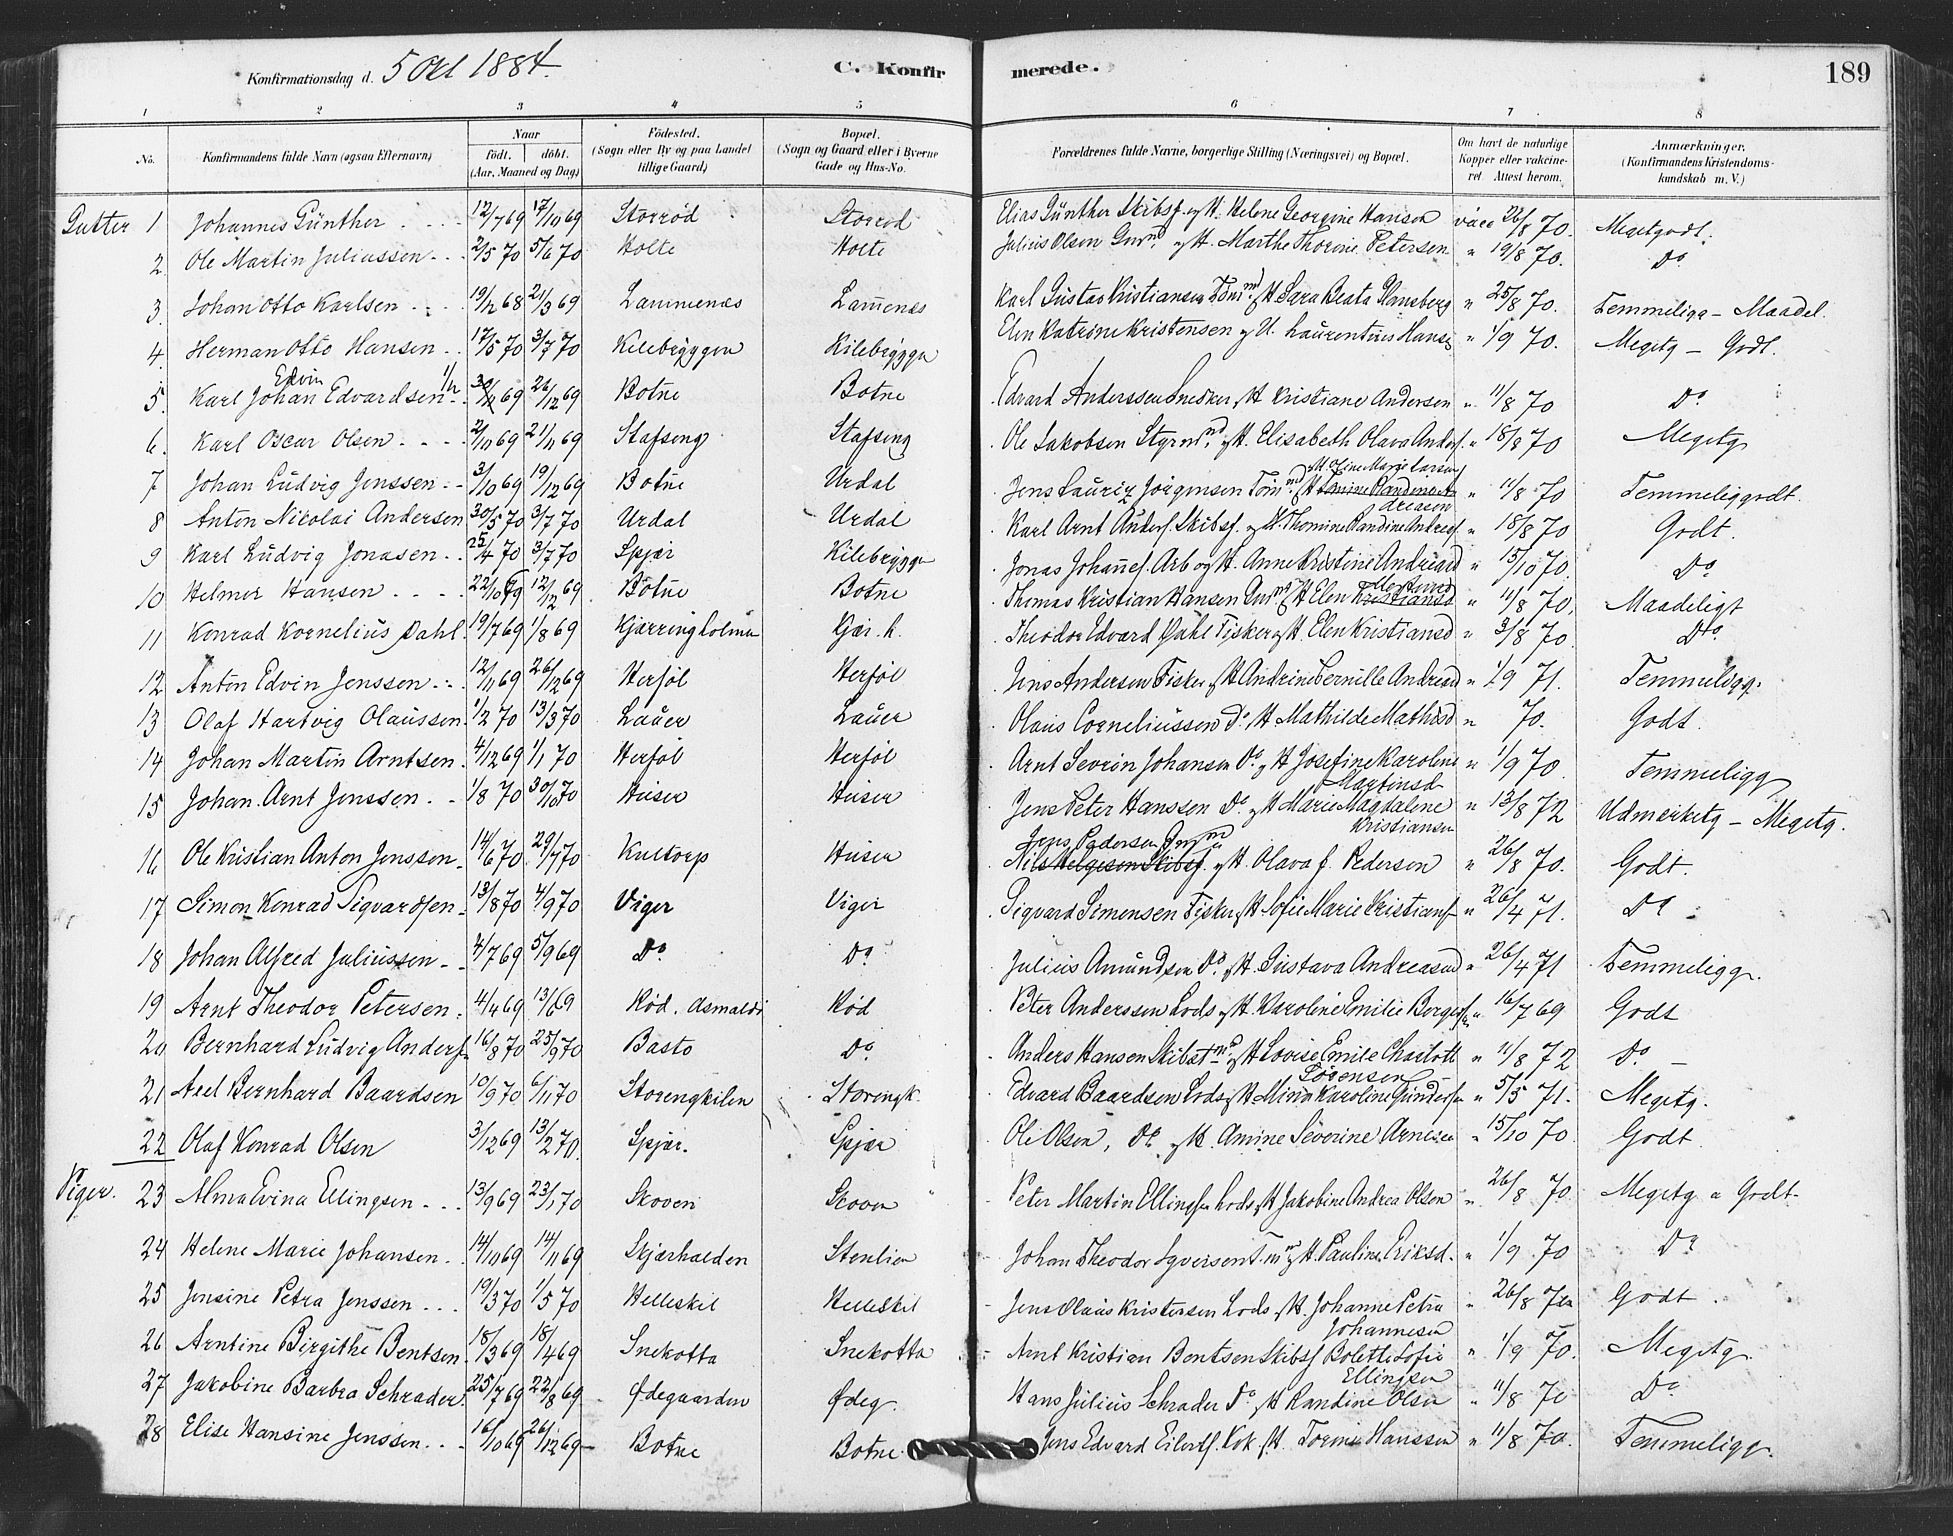 Konfirmationsdag d. 5 Okt 1884. C. Konfirmerede. 189
1 2 3 4 5 6 7 8
No. Konfirmandens fulde Navn (ogsaa Efternavn) Naar født. døbt. (Aar, Maaned og Dag) Fødested. (Sogn eller By og paa Landet tillige Gaard) Bopæl. (Sogn og Gaard eller i Byerne Gade og Hus-No. Forældrenes fulde Navne, borgerlige Stilling (Næringsvei) og Bopæl. Om havt de naturlige Kopper eller vaccineret. Attest herom. Anmærkninger. (Konfirmandens Kristendomskundskab m. V.)
Gutter 1 Johannes Günther 12/7 69 17/10 69 Storrød Storrød Elias Günther Skibsf. og H. Helene Georgine Hansen vacc 26/8 70. Megetgodt.
2 Ole Martin Juliussen 2/5 70 5/6 70 Holte Holte Julius Olsen Grm nd og H. Marthe Thorine Petersen " 19/8 70. Do
3. Johan Otto Karlsen 19/12 68 21/3 69 Lammenæs Lamenæs Karl Gustav Kristiansen Tøm nd og H Sara Beata " 25/8 70. Temmeligg - Maadel.
4. Herman Otto Hansen 17/5 70 3/7 70 Kilebryggen Kilebrygga Elen Katrine Kristensen og U. Laurentius Hansen " 1/9 70. Megetg - Godt.
5. Karl Johan Edvin Edvardsen 1/12 69 26/12 69 Botne Botne Edvard Anderssen Snedker og H Kristiane Andersen " 11/8 70 Do
6. Karl Oscar Olsen 2/10 69 21/11 69 Stafseng Stafseng Ole Jakobsen Styrm nd og H. Elisabeth Olava Andersf. " 18/8 70 Megetg
7 Johan Ludvig Jenssen 3/10 69 19/12 69 Botne Urdal Jens Lauriz Jørgensen Tøm nd og H Oline Marie Larsen " 11/8 70 Temmeliggodt.
8 Anton Nicolai Andersen 30/5 70 3/7 70 Urdal Urdal Karl Arnt Andersf. Skibsf. og H. Thomine Randine Andreasf " 18/8 70 Godt.
9 Karl Ludvig Jonasen 25/4 70 3/7 70 Spjær Kilebrygga Jonas Johannesf. Arb og H. Anne Kristine Andreasd " 15/10 70. Do
10 Helmer Hansen 22/10 69 12/12 69 Botne Botne Thomas Kristian Hansen Grm nd og H Elen " 11/8 70. Maadeligt
11 Konrad Kornelius Dahl 19/7 69 1/8 69 Kjærringholmen Kjær. h. Theodor Edvard Dahl Fisker og H. Elen Kristiansd " 3/8 70 Dto.
12 Anton Edvin Jenssen 12/11 69 26/12 69 Herføl Herføl Jens Andersen Fisker og H Andrine Pernille Andreasd " 1/9 71. Temmeligg.
13 Olaf Hartvig Olaussen 1/2 70 13/3 70 Lauer Lauer Olaus Corneliussen Do. og H Mathilde Mathisd " 70. Godt.
14 Johan Martin Arntsen 4/12 69 1/1 70 Herføl Herføl Arnt Severin Johansen Do. og H Josefine Karoline Martinsd " 1/9 70 Temmeligg
15 Johan Arnt Jenssen 1/8 70 30/10 70 Huser Huser Jens Peter Hanssen Do. og H Marie Magdalene Kristiansen " 13/8 72 Udmerketg - Megetg.
16 Ole Kristian Anton Jenssen 14/6 70 29/7 70 Kultorp Huser Jens Pedersen Grm nd Nils Helgesen Skibsf. og H. Olava f. Pederson " 26/8 70. Godt.
17 Simon Konrad Sigvardsen 13/8 70 4/9 70 Viger Viger Sigvard Simensen Fisker og H Sofie Marie Kristiansf " 26/4 71. Do
18 Johan Alfred Juliussen 4/7 69 5/9 69 Do. Do. Julius Amundsen Do. og H. Gustava Andreasd " 26/4 71 Temmeligg.
19 Arnt Theodor Petersen 4/4 69 13/6 69 Rød. Asmaløi Rød Peter Anderssen Lods og H. Karoline Emilie Borgersen " 16/7 69 Godt
20 Bernhard Ludvig Andersf 16/8 70 25/9 70 Basto Do Anders Hansen Skibst. md og H Lovise Emilie Charlott Sørensen " 11/8 72 Do
21 Axel Bernhard Baardsen 10/9 70 6/11 70 Storengkilen Storengk. Edvard Baardsen Lods og H Mina Karoline Gundersen " 5/5 71. Megetg.
22 Olaf Konrad Olsen 3/12 69 13/2 70. Spjær. Spjær Ole Olsen, Do. og H. Amine Severine Arnesen " 15/10 70. Godt
Piger. 23 Alma Evina Ellingsen 13/9 69 23/1 70 Skoven Skoven Peter Martin Ellingsen Lods og H Jakobine Andrea Olsen " 26/8 70. Megetg a Godt
24 Helene Marie Johansen 14/10 69 14/11 69 Skjærhalden Stenlien Johan Theodor Syversen og H Pauline Eriksd. " 1/9 70 Do
25 Jensine Petra Jenssen 19/3 70 1/5 70 Helleskil Helleskil Jens Olaus Kristensen Lods og H. Johanne Petra Johannesen " 26/8 70 Godt
26 Arntine Birgithe Bentsen 18/3 69 18/4 69 Snekotta Snekotta Arnt Kristian Bentsen Skibsf Bolette Sofie Ellingsen " 1/9 70. Megetg.
27 Jakobine Barbra Schrader 25/7 69 22/8 69 Ødegaarden Ødeg. Hans Julius Schrader Do og H Randine Olsen " 11/8 70 Do
28 Elise Hansine Jenssen 16/10 69 26/12 69 Botne Botne Jens Edvard Eilertsf. Kok og H. Torine Hanssen " 11/8 70. Temmeligg.